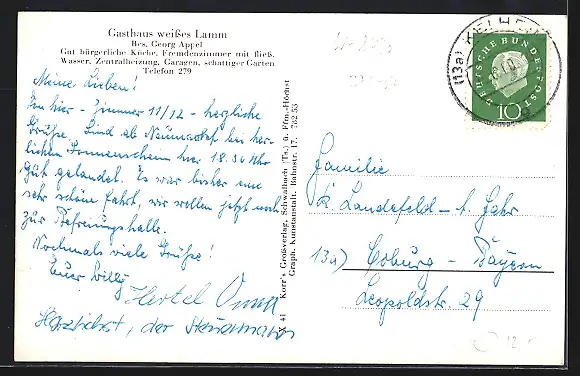 Gasthaus weißes Lamm
Bes. Georg Appel
Gut bürgerliche Küche, Fremdenzimmer mit fließ.
Wasser, Zentralheizung, Garagen, schattiger Garten
Telefon 279
Meine Lieben!
Von hier - Zimmer 11/12 - herzliche
Grüße. Sind ab Neumarkt bei herr-
lichem Sonnenschein hier 18.30 Uhr
gut gelandet. Es war bisher eine
sehr schöne Fahrt, wir wollen jetzt noch
zur Befreiungshalle.
Nochmals viele Grüße!
Euer Willy
Hertel
Herzlichst, der Steuermann
X 41 Korr's Großverlag, Schwalbach (Ts.) ü. Ffm.-Höchst
Graph. Kunstanstalt, Bahnstr. 17. 762 53
(13a) KELHEIM
DEUTSCHE BUNDESPOST
10
Familie
K. Landefeld - t. Jahr
13a) Coburg - Bayern
Leopoldstr. 29